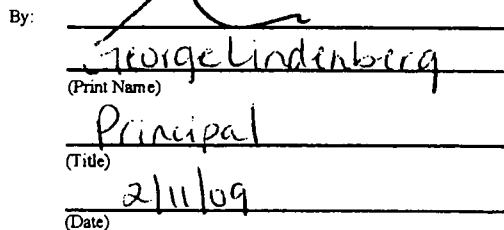 By:
George Lindenberg
(Print Name)
Principal
(Title)
2/11/09
(Date)